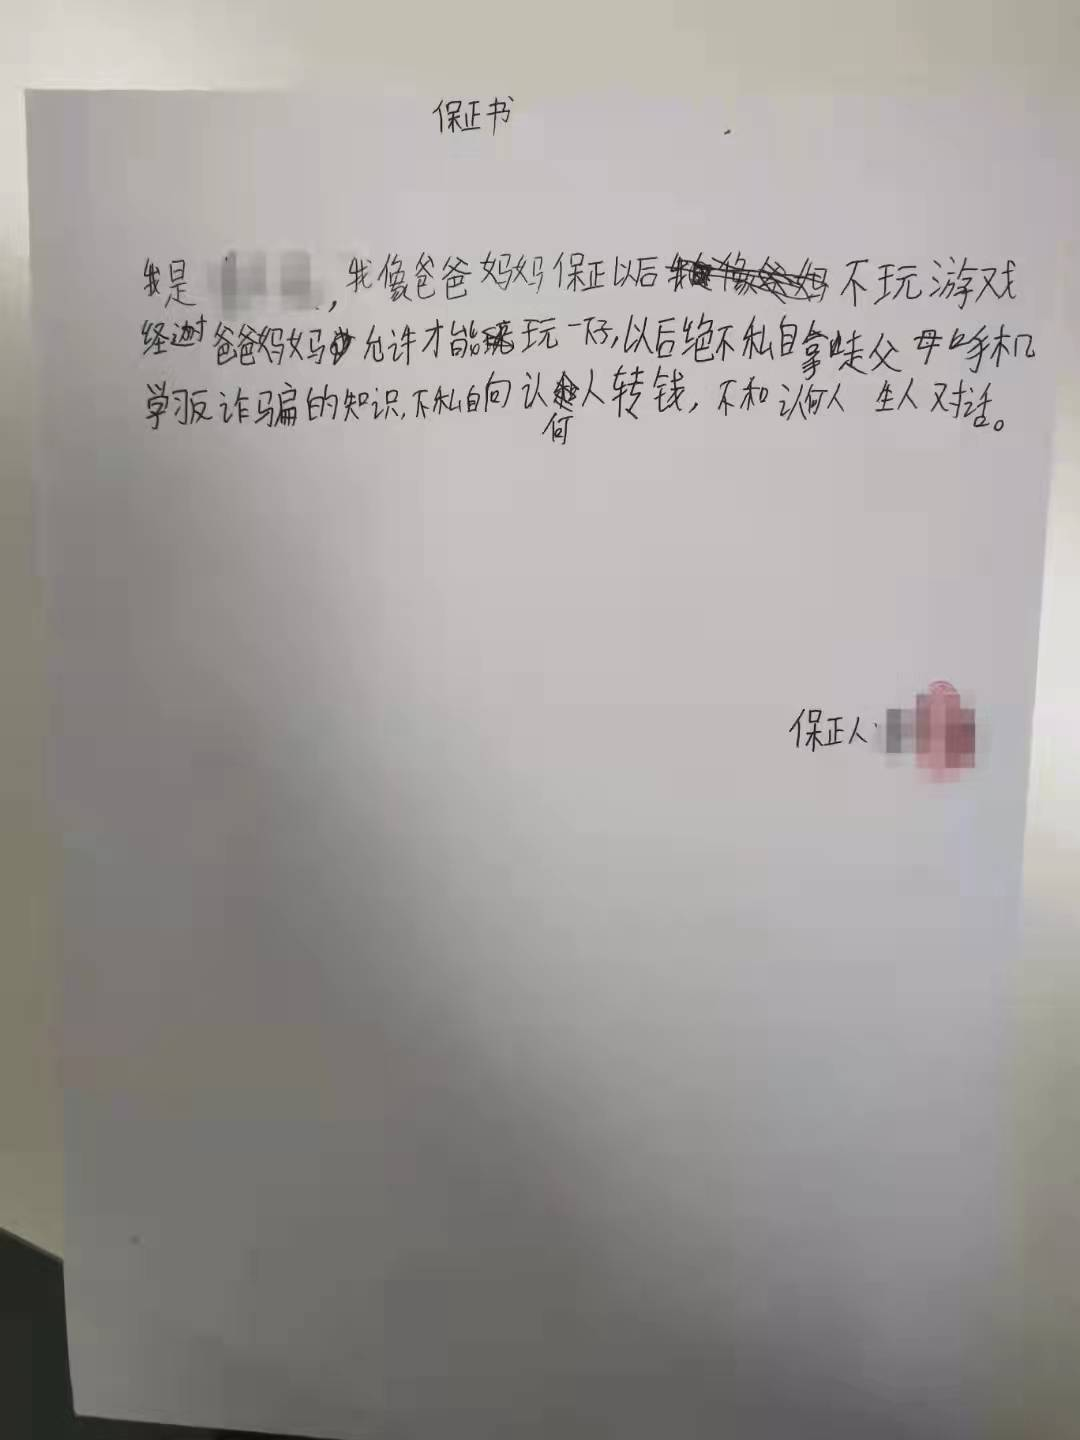 保正书
我是 ,我像爸爸妈妈保正以后不玩游戏
经过爸爸妈妈允许才能玩一下,以后绝不私自拿走父母手机
学习反诈骗的知识,不私自向认何人转钱,不和认何人生人对话。
保正人: